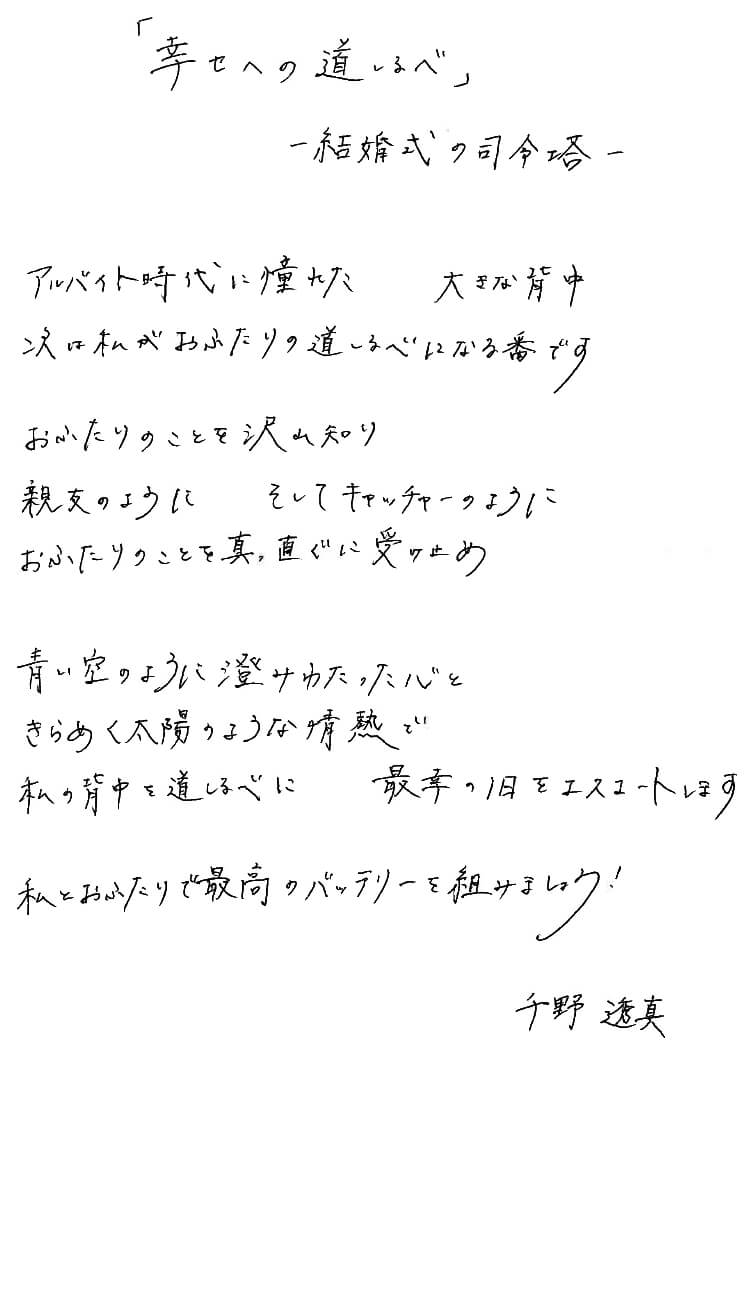 「幸せへの道しるべ」
ー結婚式の司令塔ー
アルバイト時代に憧れた　大きな背中
次は私がおふたりの道しるべになる番です
おふたりのことを沢山知り
親友のように　そしてキャッチャーのように
おふたりのことを真っ直ぐに受け止め
青い空のように澄みわたった心と
きらめく太陽のような情熱で
私の背中を道しるべに　最幸の1日をエスコートします
私とおふたりで最高のバッテリーを組みましょう！
千野 透真